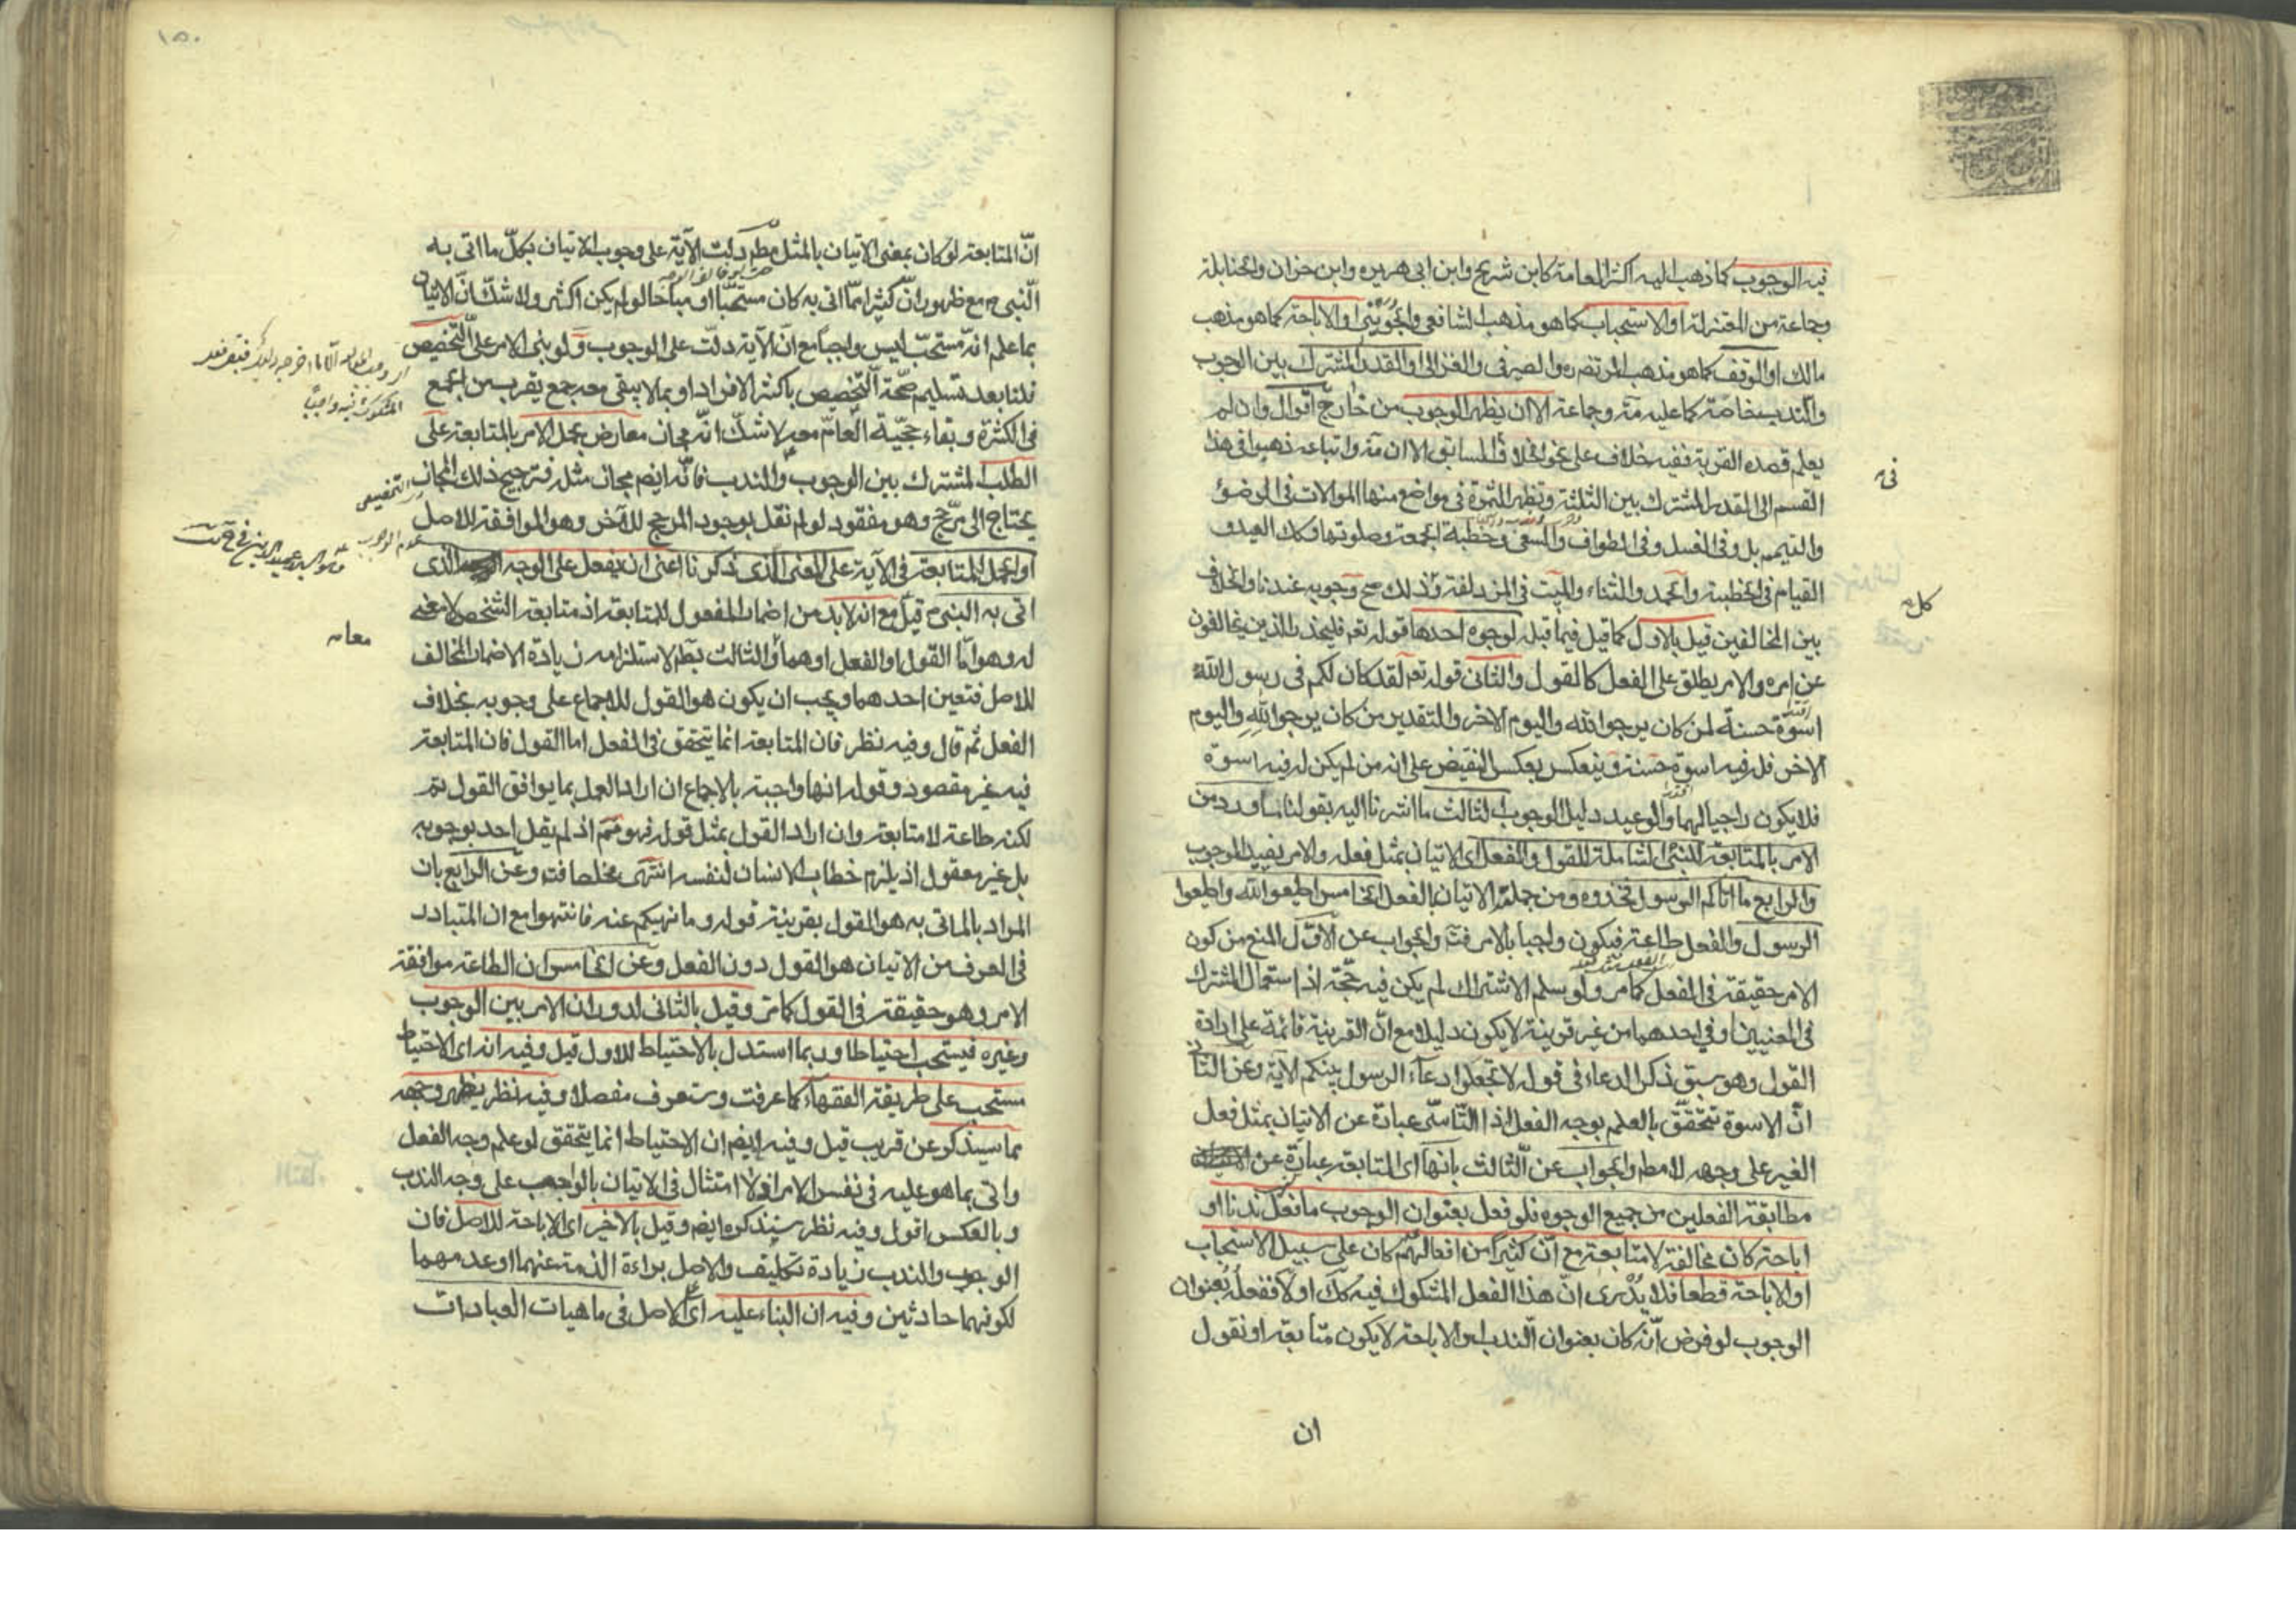 فيه الوجوب كما ذهب اليه اكثر العامة كابن شريح وابن ابى هريره وابن خران والحنابلة
وجماعة من المعتزلة او الاستحباب كما هو مذهب الشافعى والجوينى او الاباحة كما هو مذهب
مالك او الوقف كما هو مذهب المرتضى ره والصيرفى والغزالى او القدر المشترك بين الوجوب
والندب خاصة كما عليه مة وجماعة الا ان يظهر الوجوب من خارج اقوال وان لم
يعلم قصده القربة ففيه خلاف على نحو الخلاف السابق الا ان مة واتباعه ذهبوا فى هذا
القسم الى القدر المشترك بين الثلثة وتظهر الثمرة فى مواضع منها الموالات فى الوضؤ
والتيمم بل وفى الغسل وفى الطواف والسعى وخطبة الجمعة وصلوتها وكك العيد و
القيام فى الخطبة والحمد والثناء والمبيت فى المزدلفة وذلك مع وجوبه عندنا والخلاف
بين المخالفين قيل بالاول كما قيل فيما قبله لوجوه احدها قوله تعم فليحذر الذين يخالفون
عن امره والامر يطلق على الفعل كالقول والثانى قوله تعم لقد كان لكم فى رسول الله
اسوة حسنة لمن كان يرجو الله واليوم الاخر والتقدير من كان يرجو الله واليوم
الاخر فله فيه اسوة حسنة وينعكس بعكس النقيض على انه من لم يكن له فيه اسوة
فلا يكون راجيا لهما والوعيد دليل الوجوب الثالث ما اشرنا اليه بقولنا ما ورد من
الامر بالمتابعة للنبى الشاملة للقول والفعل اى الاتيان بمثل فعله والامر يفيد الوجوب
والرابع ما اتاكم الرسول فخذوه ومن جملته الاتيان بالفعل الخامس اطيعوا الله واطيعوا
الرسول والفعل طاعة فيكون واجبا بالامر والجواب عن الاول المنع من كون
الامر حقيقة فى الفعل كما مر ولو سلم الاشتراك لم يكن فيه حجة اذ استعمال المشترك
فى المعنيين او فى احدهما من غير قرينة لا يكون دليلا مع ان القرينة قائمة على ارادة
القول وهو سبق ذكر الدعاء فى قوله لا تجعلوا دعاء الرسول بينكم الآية وعن الثانى
ان الاسوة تتحقق بالعلم بوجه الفعل اذ التاسى عبارة عن الاتيان بمثل فعل
الغير على وجهه لا مطم والجواب عن الثالث بانها اى المتابعة عبارة عن
مطابقة الفعلين من جميع الوجوه فلو فعل بعنوان الوجوب ما فعل ندبا او
اباحة كان مخالفة لا متابعة مع ان كثيرا من افعالهم كان على سبيل الاستحباب
او الاباحة قطعا فلا يدرى ان هذا الفعل المشكوك فيه كك او لا ففعله بعنوان
الوجوب لو فرض انه كان بعنوان الندب او الاباحة لا يكون متابعة او نقول
ان
فى
كل
١٥٠
ان المتابعة لو كان بمعنى الاتيان بالمثل مطم دلت الآية على وجوب الاتيان بكل ما اتى به
النبى ص مع ظهور ان كثيرا مما اتى به كان مستحبا او مباحا لو لم يكن اكثر ولا شك ان الاتيان
بما علم انه مستحب ليس واجبا مع ان الآية دلت على الوجوب ولو بنى الامر على التخصيص
قلنا بعد تسليم صحة التخصيص باكثر الافراد او بما لا يبقى معه جمع يقرب من الجمع
فى الكثرة وبقاء حجية العام معه لا شك انه مجاز معارض بحمل الامر بالمتابعة على
الطلب المشترك بين الوجوب والندب فانه ايضم مجاز مثله فترجيح ذلك المجاز
يحتاج الى مرجح وهو مفقود لو لم نقل بوجود المرجح للآخر وهو الموافقة للاصل
او بحمل المتابعة فى الآية على المعنى الذى ذكرنا اعنى ان يفعل على الوجه الذى
اتى به النبى ص قيل مع انه لا بد من اضمار المفعول للمتابعة اذ متابعة الشخص لا معنى
له وهو اما القول او الفعل او هما والثالث بطم لاستلزامه زيادة الاضمار المخالف
للاصل فتعين احدهما ويجب ان يكون هو القول للاجماع على وجوبه بخلاف
الفعل ثم قال وفيه نظر فان المتابعة انما يتحقق فى الفعل اما القول فان المتابعة
فيه غير مقصود وقوله انها واجبة بالاجماع ان اراد العمل بما يوافق القول تم
لكنه طاعة لا متابعة وان اراد القول بمثل قوله فهو مم اذ لم يقل احد بوجوبه
بل غير معقول اذ يلزم خطاب الانسان لنفسه انتهى مخلصا فته وعن الرابع بان
المراد بالماتى به هو القول بقرينة قوله وما نهيكم عنه فانتهوا مع ان المتبادر
فى العرف من الاتيان هو القول دون الفعل وعن الخامس ان الطاعة موافقة
الامر وهو حقيقة فى القول كما مر وقيل بالثانى لدوران الامر بين الوجوب
وغيره فيستحب احتياطا وربما استدل بالاحتياط للاول قيل وفيه انه اى الاحتياط
مستحب على طريقة الفقهاء كما عرفت وستعرف مفصلا وفيه نظر يظهر وجهه
مما سيذكر عن قريب قيل وفيه ايضم ان الاحتياط انما يتحقق لو علم وجه الفعل
واتى بما هو عليه فى نفس الامر ولا امتثال فى الاتيان بالواجب على وجه الندب
وبالعكس اقول وفيه نظر سنذكره ايضم وقيل بالاخير اى الاباحة للاصل فان
الوجوب والندب زيادة تكليف والاصل براءة الذمة عنهما او عدمهما
لكونهما حادثين وفيه ان البناء عليه اى الاصل فى ماهيات العبادات
المشكوك فيه واجبا
التخصيص
عدم الوجوب
معانه